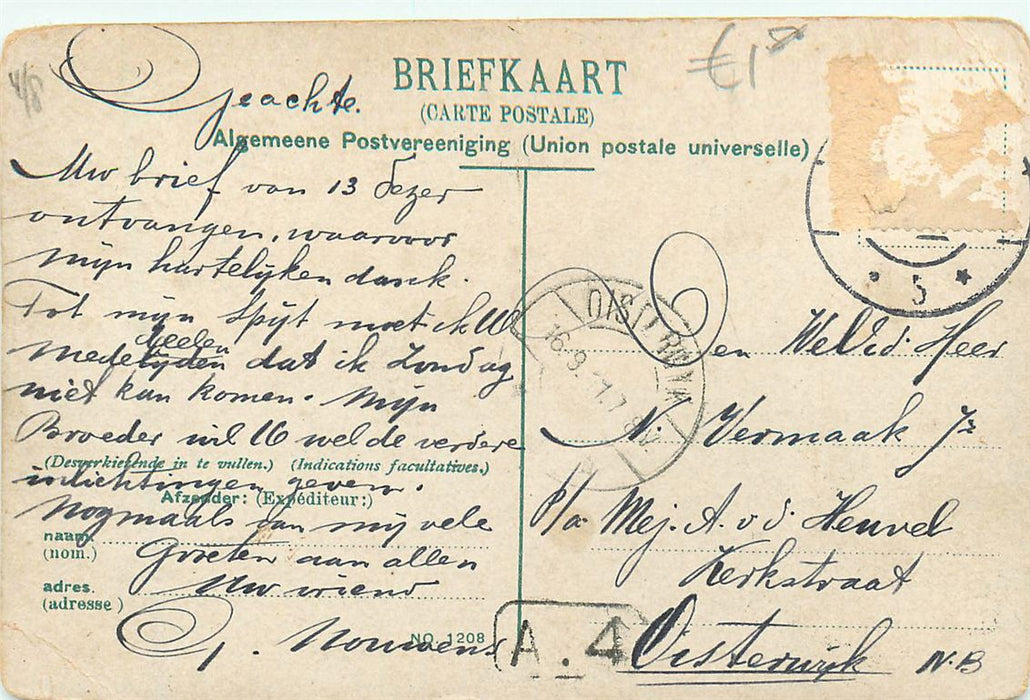 4/8
€1
BRIEFKAART
(CARTE POSTALE)
Algemeene Postvereeniging (Union postale universelle)
Geachte.
Uw brief van 13 dezer
ontvangen, waarvoor
mijn hartelijken dank.
Tot mijn Spijt moet ik U
deelen
medelijden dat ik Zondag
niet kan komen. Mijn
Broeder wil U wel de verdere
(Desverkiezende in te vullen.) (Indications facultatives.)
inlichtingen geven.
Afzender: (Expéditeur:)
Nogmaals van mij vele
naam
(nom.)
Groeten aan allen
adres.
(adresse)
Uw vriend
Nouwens
NO. 1208
5
OISTERWIJK
16.8.17.
en Wel Ed. Heer
N. Vermaak Jr
p/a Mej. A. v. d. Heuvel
Kerkstraat
Oisterwijk N.B
A.4